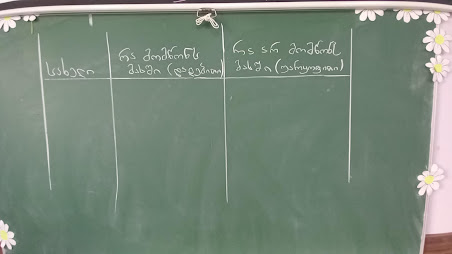 სახელი
რა მომწონს
მასში (დადებითი)
რა არ მომწონს
მასში (უარყოფითი)